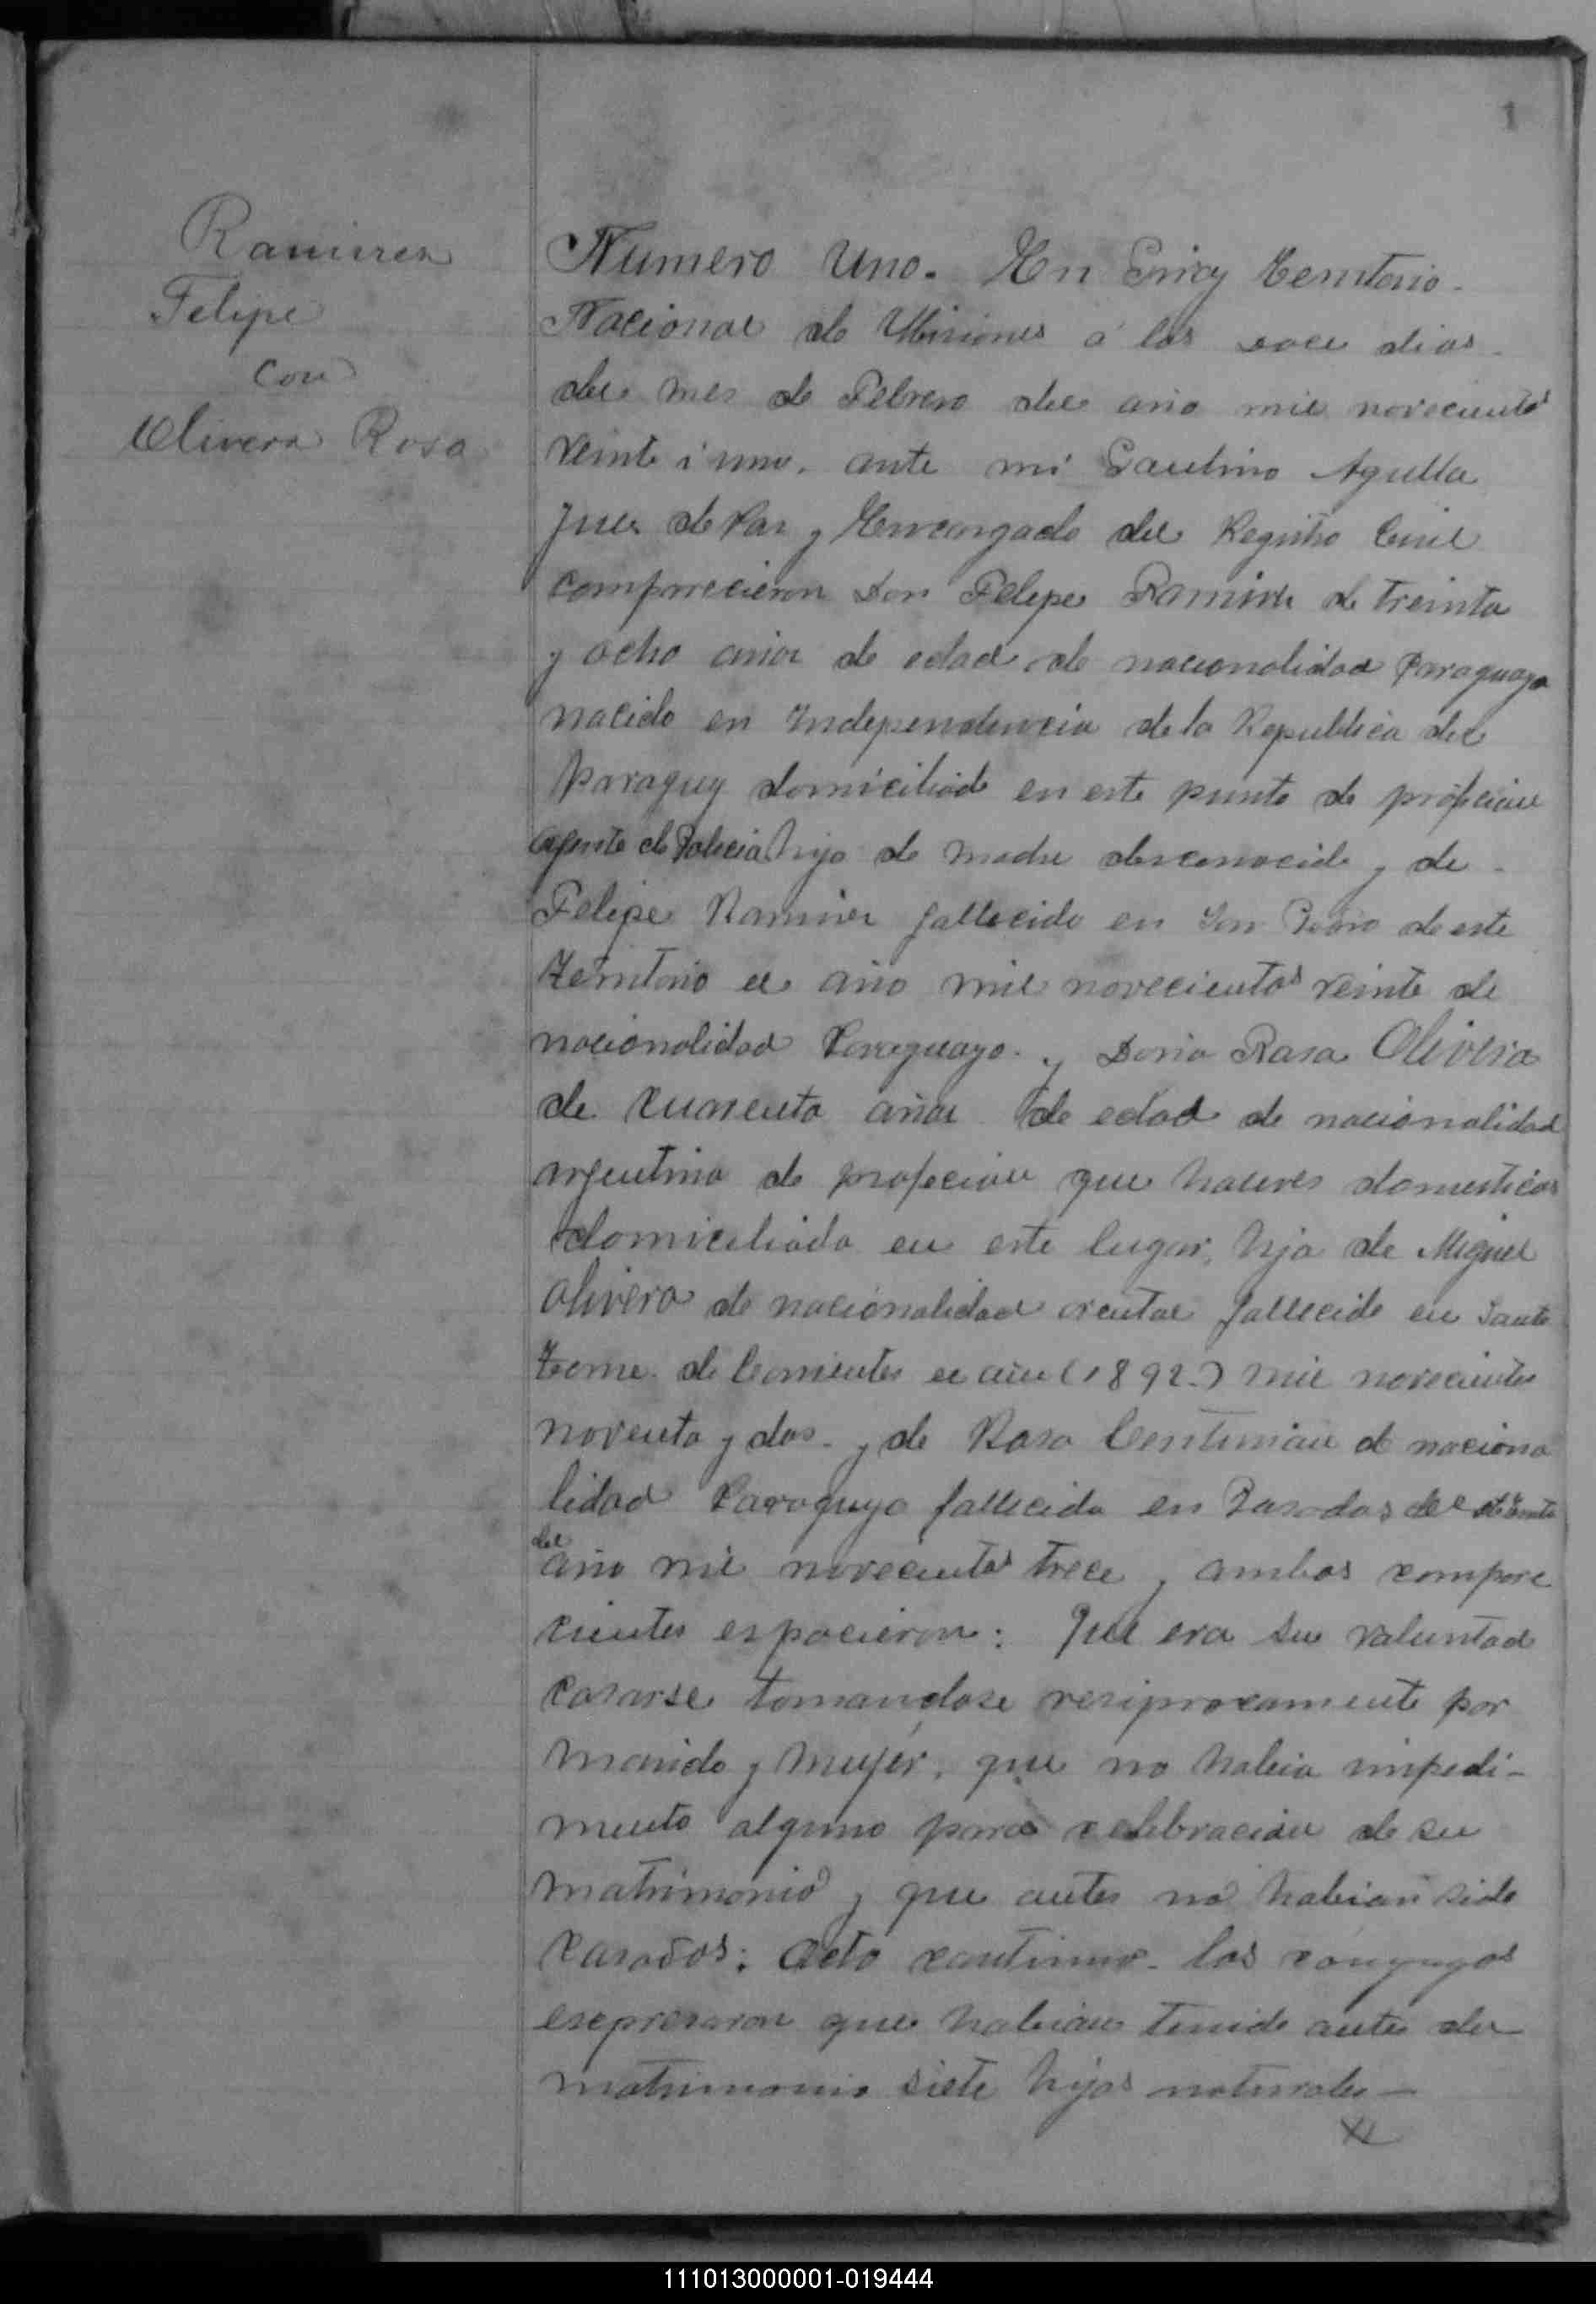 1
Ramirez
Felipe
con
Olivera Rosa
Numero Uno. En Territorio
Nacional de Misiones á los doce dias
del mes de Febrero del año mil novecientos
veinte i uno. ante mi Agulla
Juez de Paz y Encargado del Registro Civil
comparecieron Don Felipe Ramires de treinta
y ocho años de edad, de nacionalidad Paraguaya
nacido en Independencia de la Republica del
Paraguy domiciliado en este punto de profecion
agente de Policia hijo de madre desconocida y de
Felipe Ramires fallecido en San Pedro de este
Territorio el año mil novecientos veinte de
nacionalidad Paraguayo. y Doña Rosa Olivera
de cuarenta años de edad de nacionalidad
argentina de profecion que haceres domesticos
domiciliada en este lugar, hija de Miguel
Olivera de nacionalidad oriental fallecido en Santo
Tome de Corrientes el año (1892.) mil novecientos
noventa y dos. y de Rosa Centurian de naciona
lidad Paraguya fallecida en Posadas de este
del
año mil novecientos trece y ambos compare
cientes espocieron: Que era su valuntad
casarse tomandose resiprocamente por
marido y mujer, que no habia impedi-
mento alguno para celebracion de su
matrimonio y que antes no habian sido
casados: Acto continuo los conyugos
esepresaron que habian tenido antes del
matrimonio siete hijos naturales—
111013000001-019444